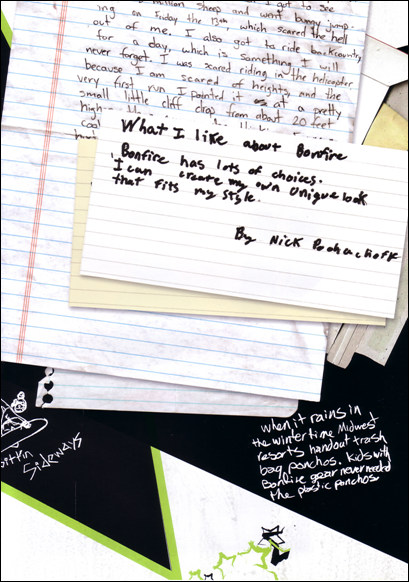 million sheep and went bungy jump-
ing on Friday the 13th, which scared the hell
out of me. I also got to ride backcountry
for a day, which is something I will
never forget. I was scared riding in the helicopter
because I am scared of heights, and the
very first run I pointed it at a pretty
high
small little cliff drop from about 20 feet
What I like about Bonfire
Bonfire has lots of choices.
I can create my own unique look
that fits my style.
By Nick
Sideways
when it rains in
the wintertime Midwest
resorts handout trash
bag ponchos. Kids with
Bonfire gear never needed
the plastic ponchos